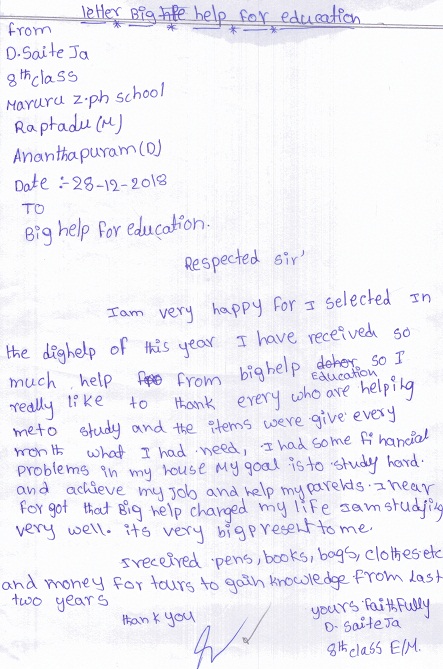 letter Big help for education
from
D. Saite Ja
8th class
Maruru z.ph school
Raptadu (M)
Ananthapuram (D)
Date :- 28-12-2018
TO
Big help for education.
Respected sir'
I am very happy for I selected In
the dighelp of this year I have received so
much help from bighelp Education so I
really like to thank every who are helping
meto study and the items were give every
month what I had need, I had some financial
problems in my house My goal is to study hard.
and achieve my Job and help my parelds. I near
for got that Big help changed my life Iam studjing
very well. its very big presert to me.
I received pens, books, bags, clothes etc
and money for tours to gain knowledge from last
two years
thank you
yours faithfully
D. Saite Ja
8th class E/M.